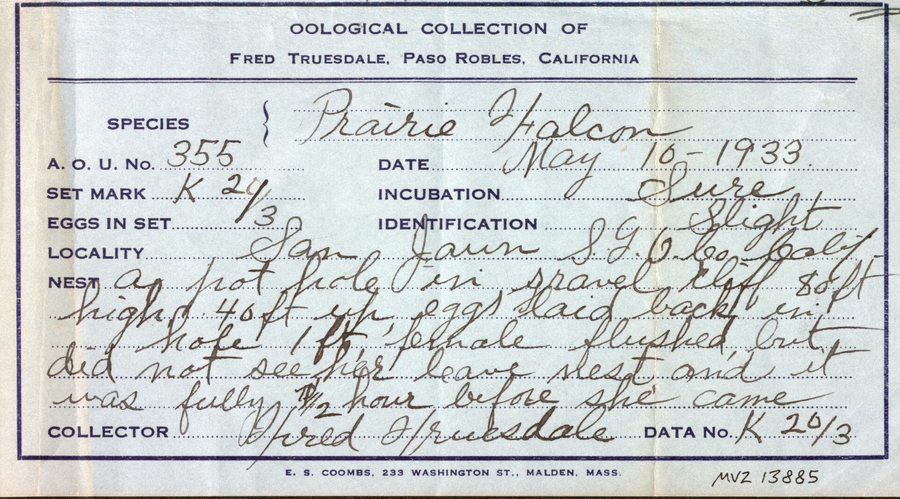 OOLOGICAL COLLECTION OF
FRED TRUESDALE, PASO ROBLES, CALIFORNIA
SPECIES } Prairie Falcon
A. O. U. No. 355 DATE May 10 - 1933.
SET MARK K 20/3 INCUBATION Sure
EGGS IN SET 3 IDENTIFICATION Slight
LOCALITY San Jaun S.L.O. Co. Calif
NEST a pot hole in gravel cliff 80ft
high 40ft up eggs laid back in
hole 1 ft, female flushed but
did not see her leave nest and it
was fully 1/2 hour before she came
COLLECTOR Fred Truesdale DATA No. K 20/3
E. S. COOMBS, 233 WASHINGTON ST., MALDEN, MASS.
MVZ 13885